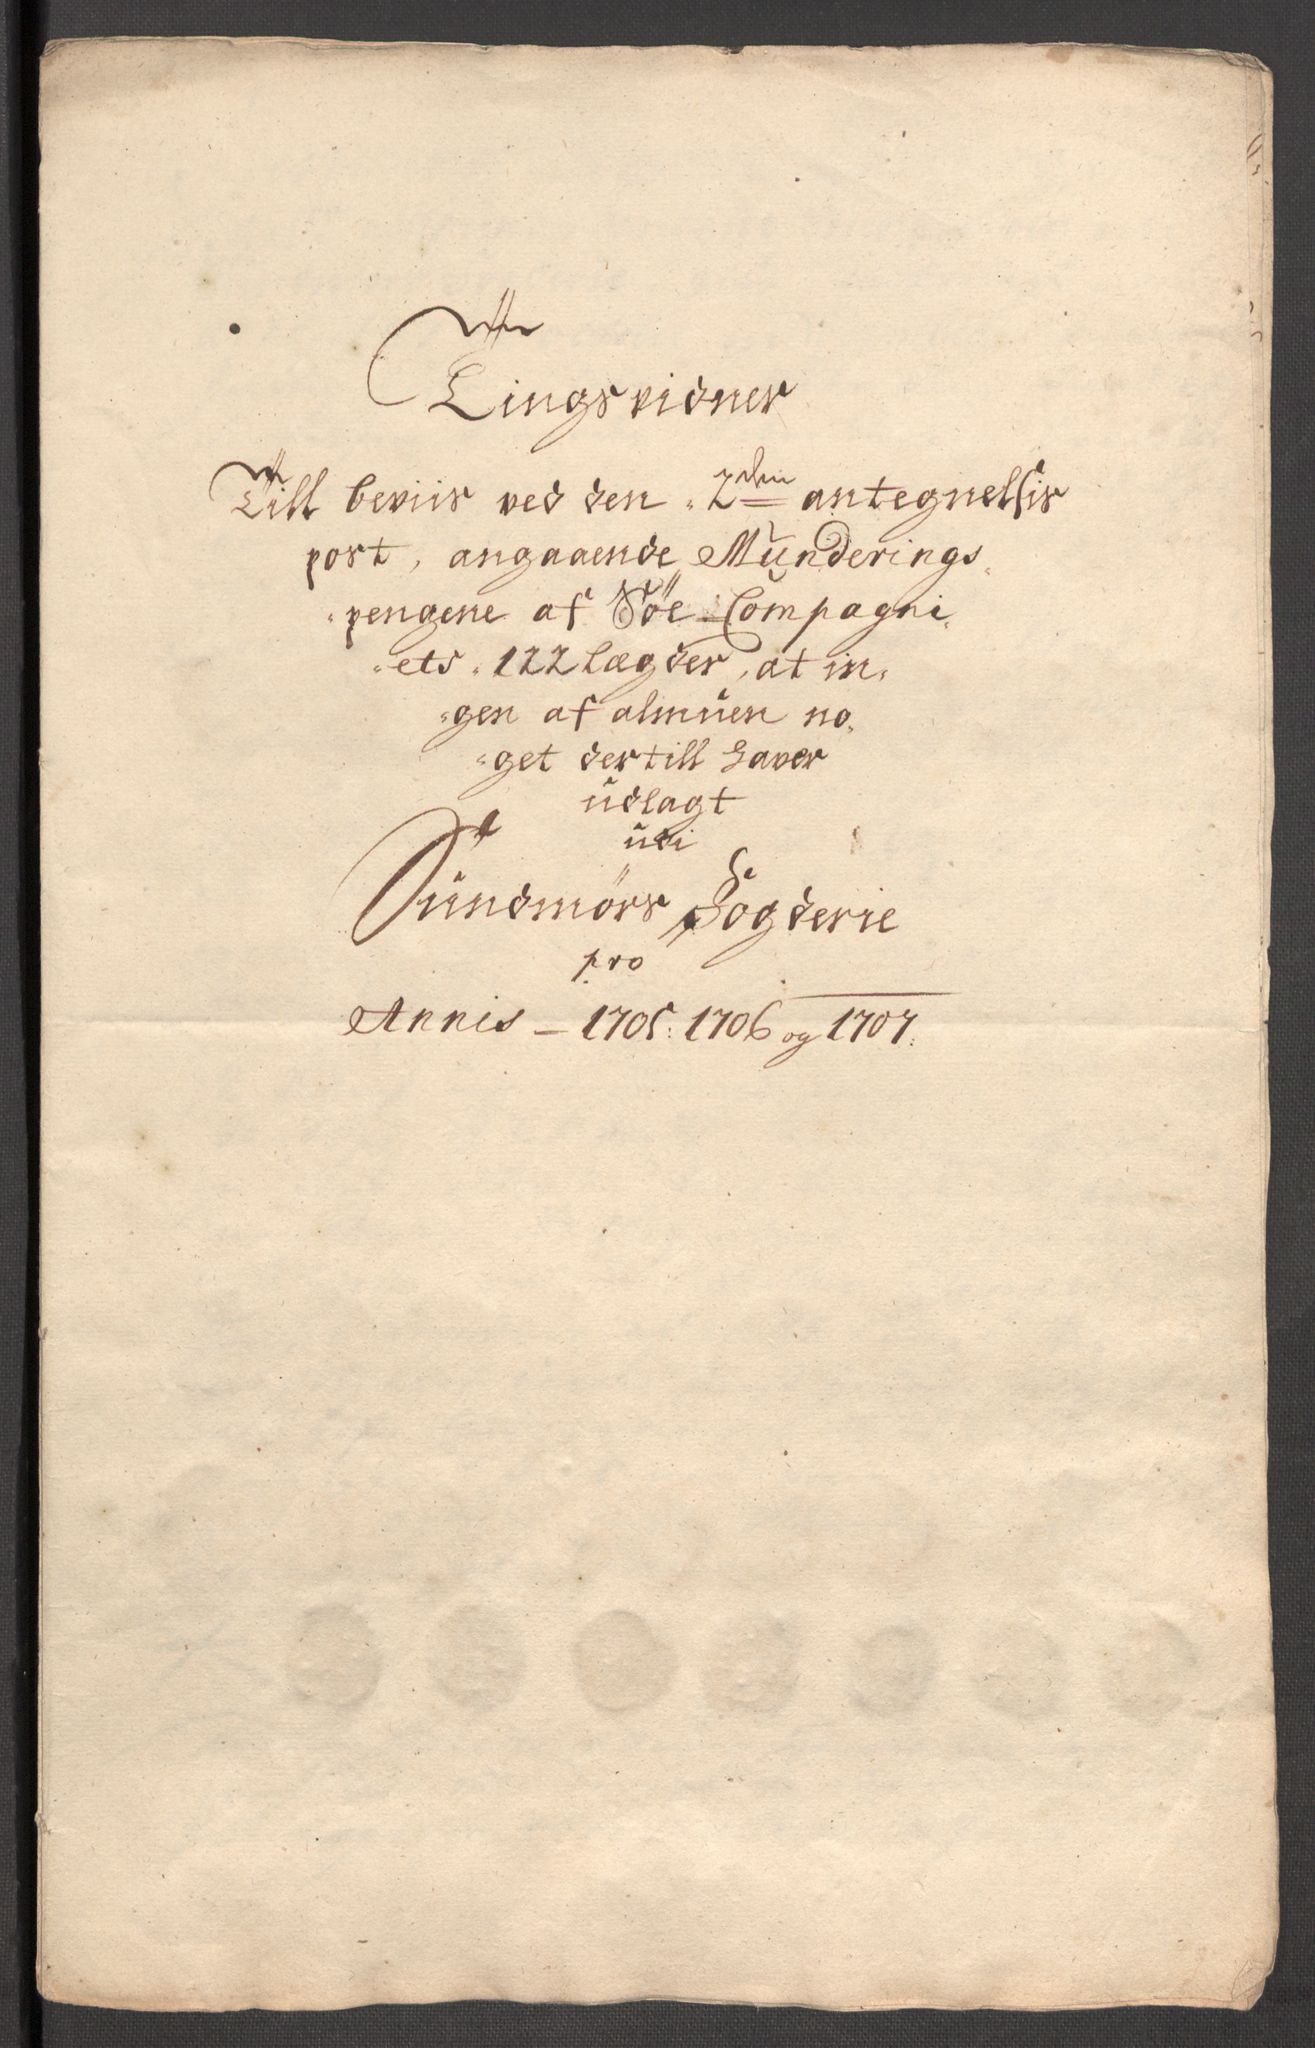 Tingsvidner
Till beviis ved den 2den antegnelsis
post, angaaende Münderings
pengene af Söe Compagni
ets 122 Lægder, at in
gen af almüen no
get dertill haver
üdlagt
üdi
Sündmörs Fogderie
pro
Annis - 1705: 1706 og 1707: